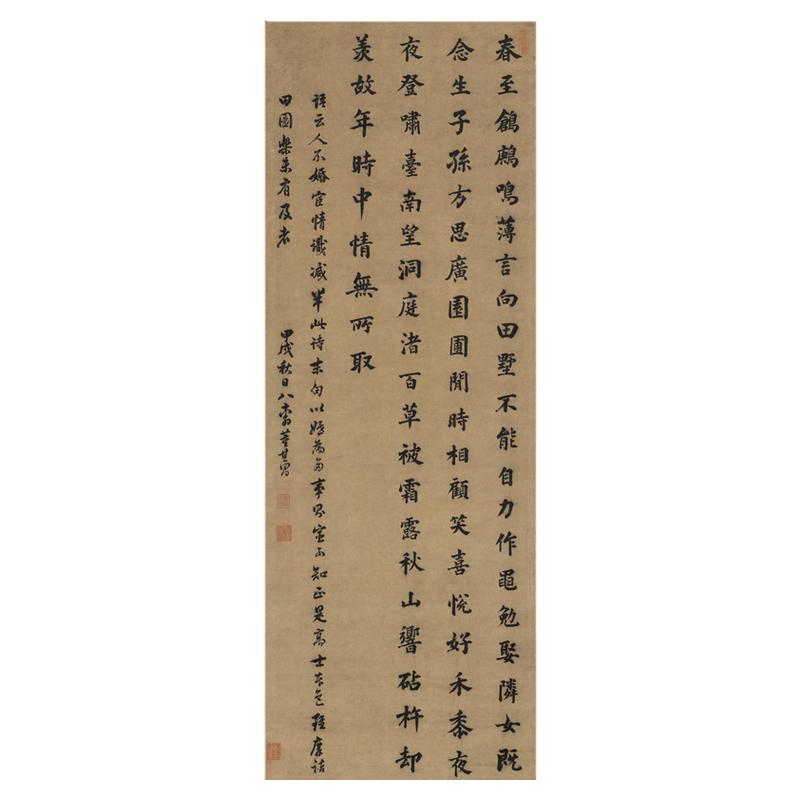 春至鶬鶊鳴薄言向田墅不能自力作黽勉娶隣女既
念生子孫方思廣園圃閒時相顧笑喜悅好禾黍夜
夜登嘯臺南望洞庭渚百草被霜露秋山響砧杵却
羨故年時中情無所取
語云人不婚宦情識減半此詩末句以婚為多事
知正是高士
摩詰
田園樂未有及者
甲戌秋日八十翁董其昌